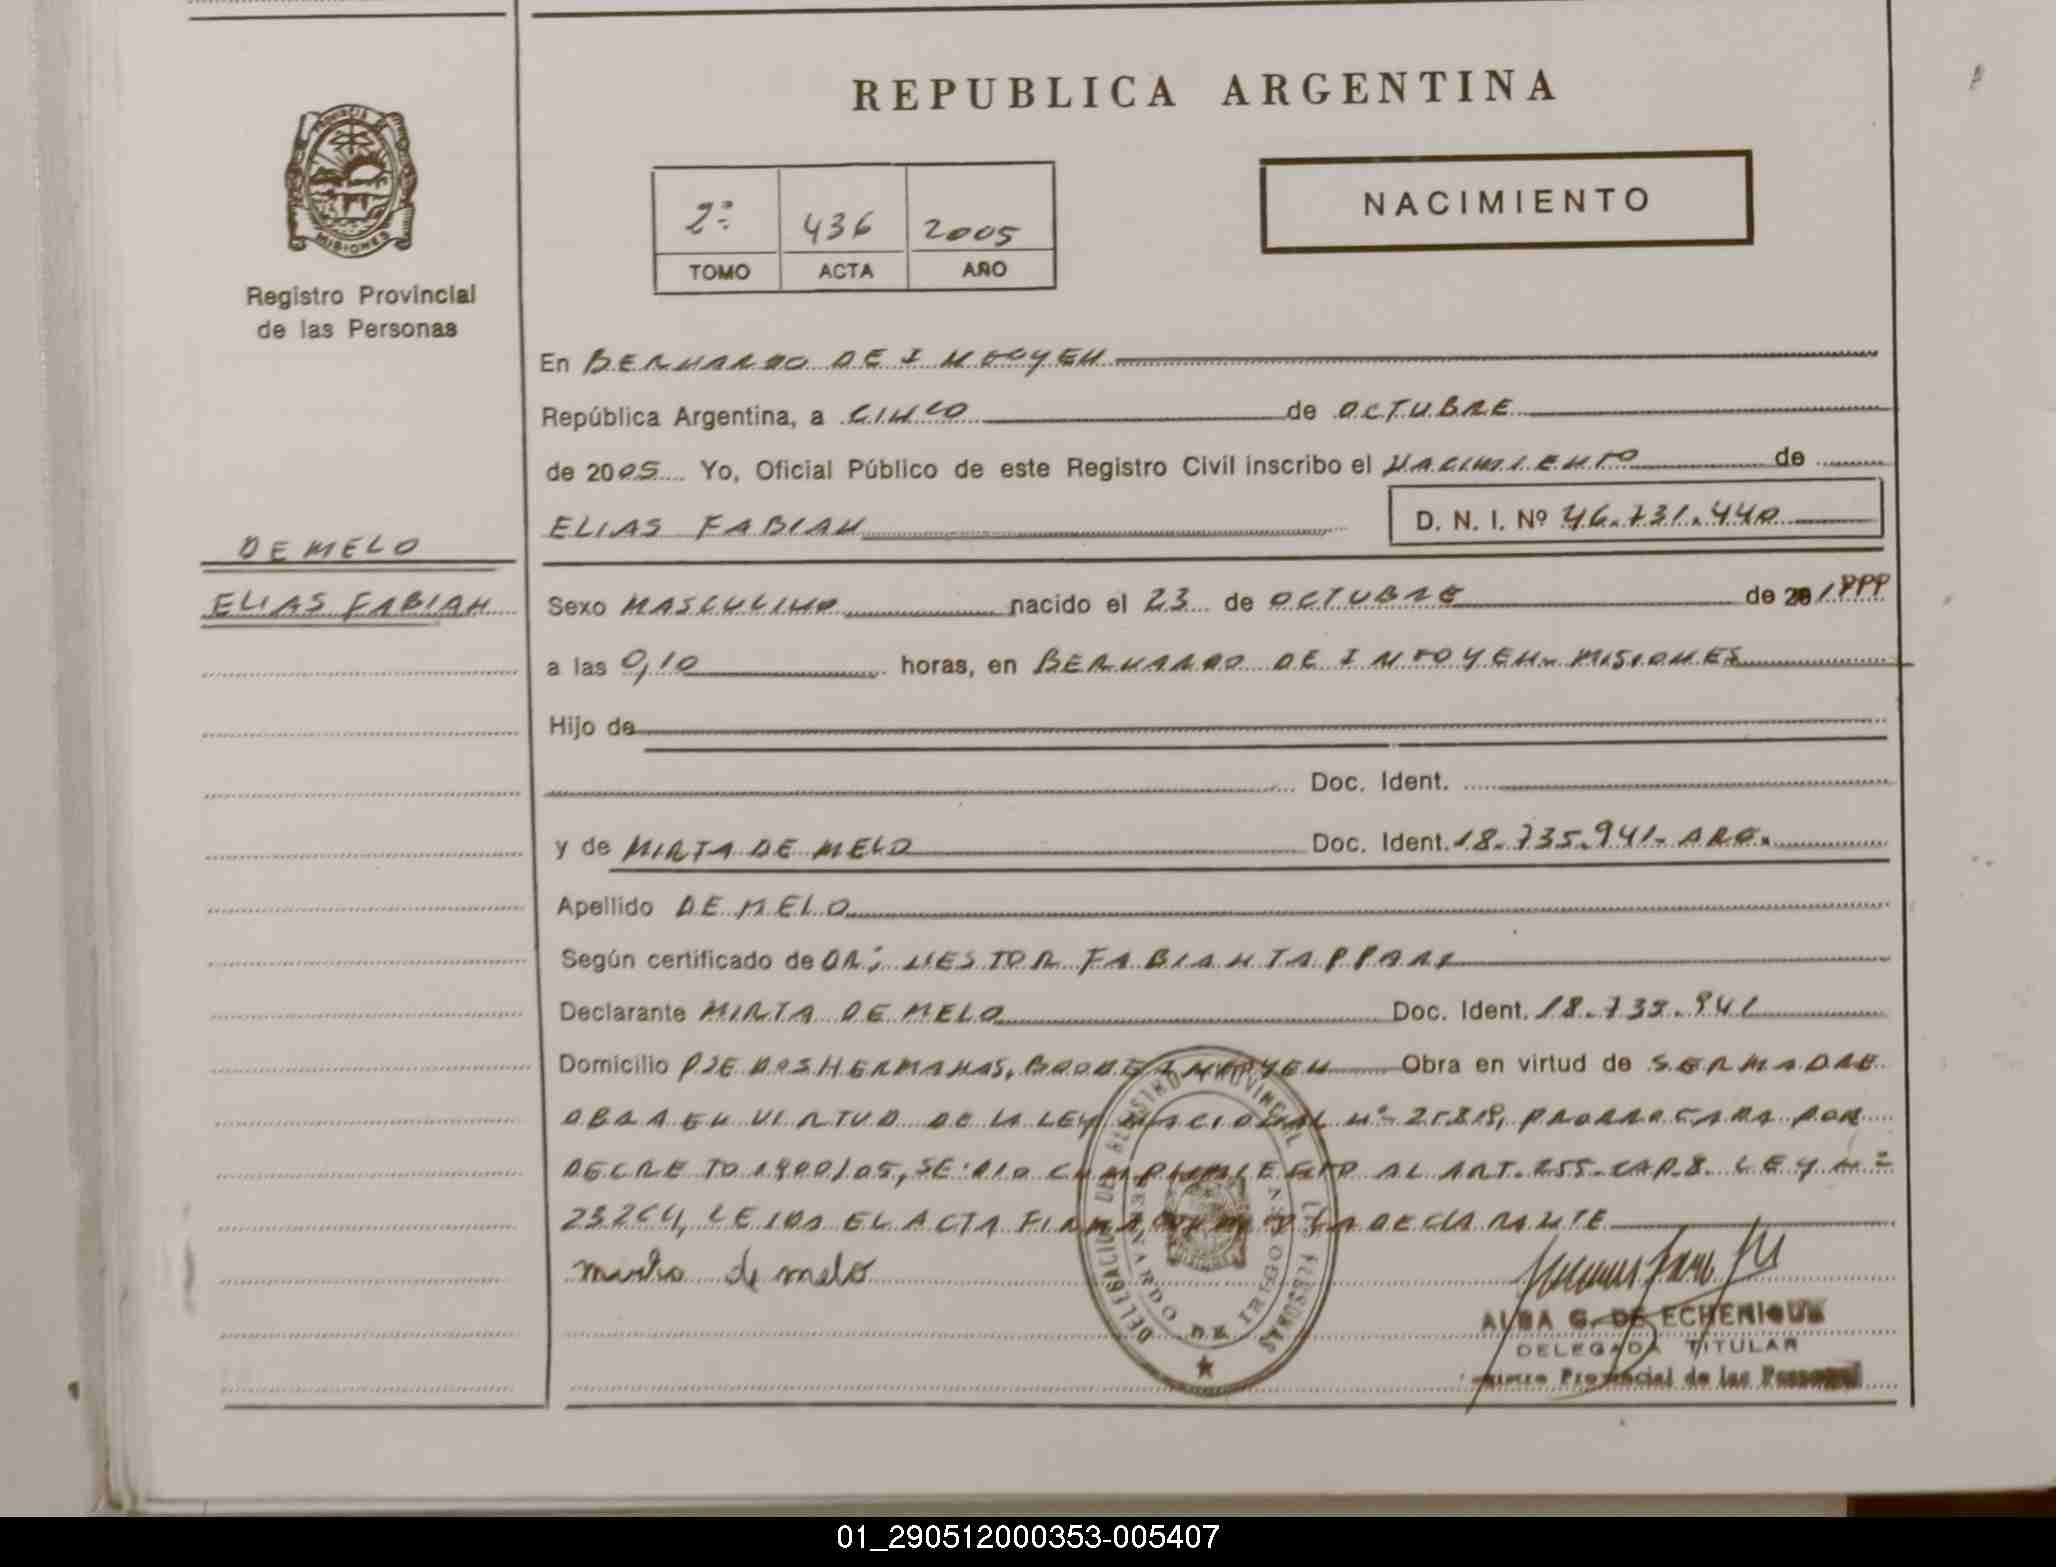 REPUBLICA ARGENTINA
PROVINCIA DE
MISIONES
Registro Provincial
de las Personas
2º 436 2005
TOMO ACTA AÑO
NACIMIENTO
En BERNARDO DE IRIGOYEN
República Argentina, a CINCO de OCTUBRE
de 2005 Yo, Oficial Público de este Registro Civil inscribo el NACIMIENTO de
ELIAS FABIAN D. N. I. Nº 46.731.440
DE MELO
ELIAS FABIAN
Sexo MASCULINO nacido el 23 de OCTUBRE de 1999
a las 0,10 horas, en BERNARDO DE IRIGOYEN- MISIONES
Hijo de
Doc. Ident.
y de MIRTA DE MELO Doc. Ident. 18.735.941- ARG.
Apellido DE MELO
Según certificado de DR: NESTOR FABIAN TAPPARI
Declarante MIRTA DE MELO Doc. Ident. 18.735.941
Domicilio PJE DOS HERMANAS, BDO DE IRIGOYEN Obra en virtud de SER MADRE
OBRA EN VIRTUD DE LA LEY NACIONAL Nº 25.819, PRORROGADA POR
DECRETO 1900/05, SE DIO CUMPLIMIENTO AL ART. 255- CAP. 8. LEY Nº
23264, LEIDA EL ACTA FIRMA CONMIGO LA DECLARANTE
de melo
DELEGACION DEL REGISTRO PROVINCIAL DE LAS PERSONAS
BERNARDO DE IRIGOYEN
ALBA G. DE ECHENIQUE
DELEGADA TITULAR
Registro Provincial de las Personas
01_290512000353-005407